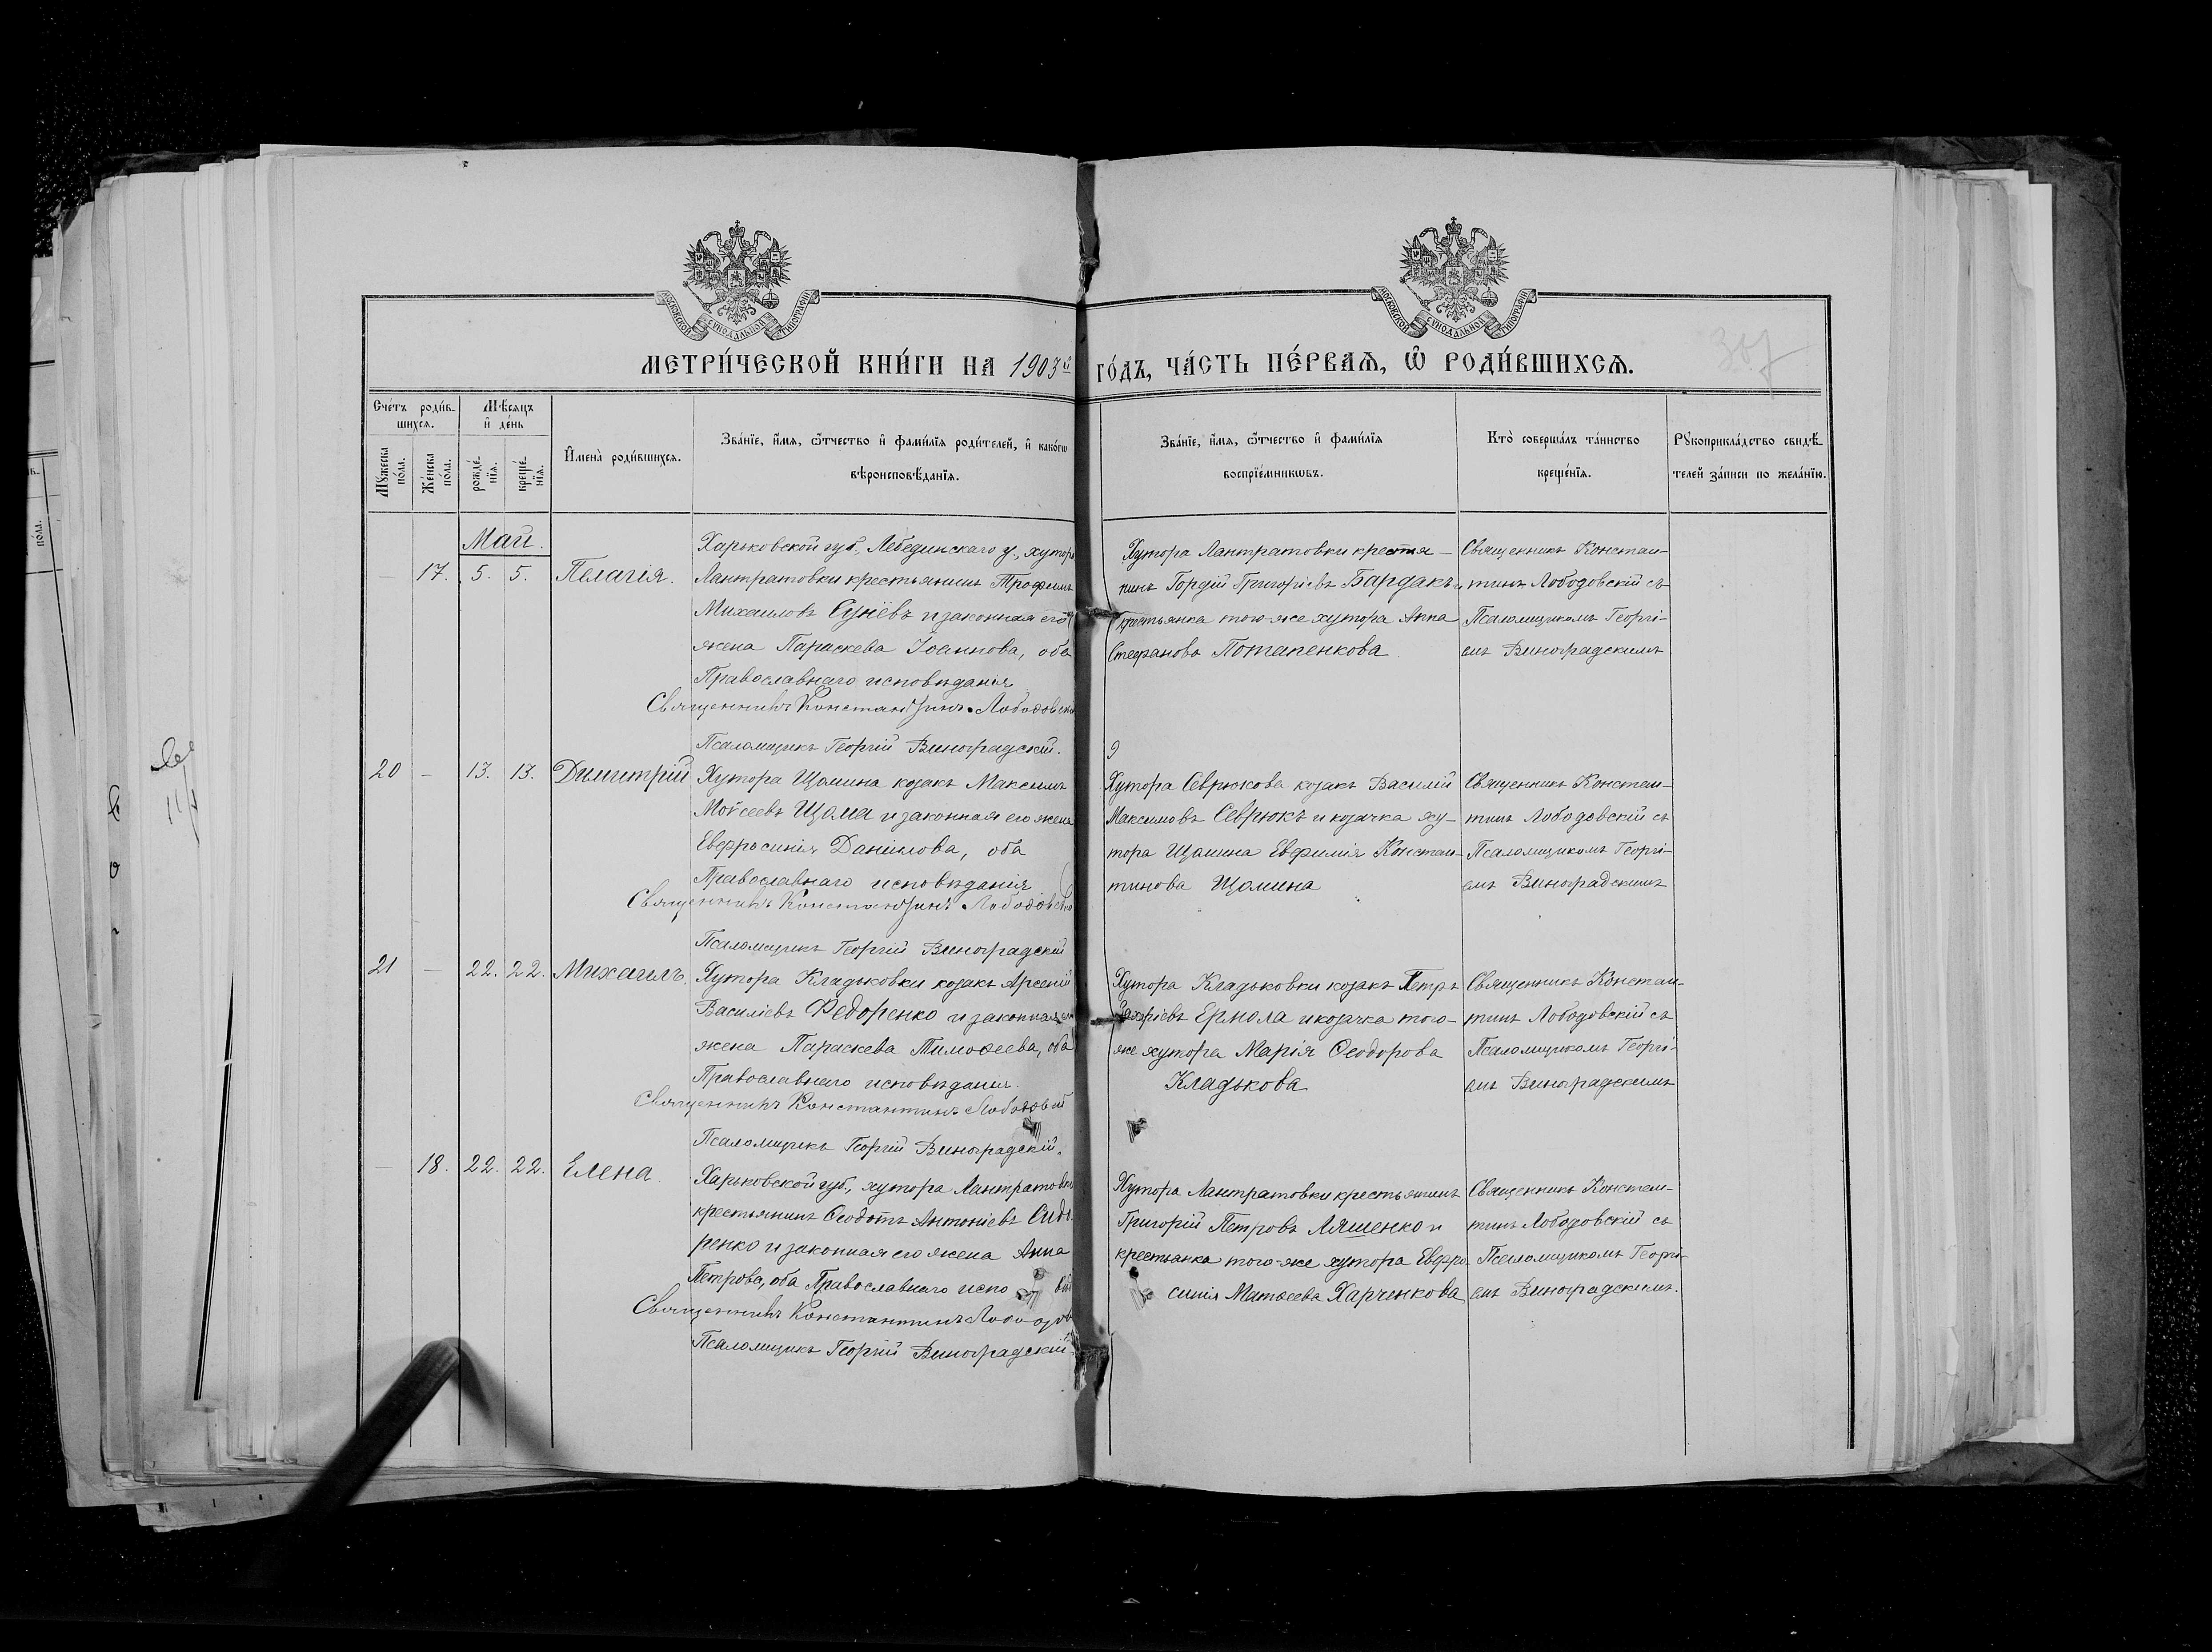 МОСКОВСКОЙ СУНОДАЛЬНОЙ ТИПОГРАФІИ
МОСКОВСКОЙ СУНОДАЛЬНОЙ ТИПОГРАФІИ
МЕТРИ́ЧЕСКОЙ КНИ́ГИ НА 1903й ГО́ДЪ, ЧА́СТЬ ПЕ́РВАѦ, Ѡ РОДИ́ВШИХСѦ.
Сче́тъ роди́в-
шихсѧ.
Мѣ́сѧцъ
и де́нь
Мꙋжеска по́ла.
Же́нска по́ла.
рожде́-
нїѧ.
креще́-
нїѧ.
Имена̀ роди́вшихсѧ.
Зва́нїе, и́мѧ, ѻ́тчество и фами́лїѧ роди́телей, и како́гѡ
вѣроисповѣ́данїѧ.
Зва́нїе, и́мѧ, ѻ́тчество и фами́лїѧ
воспрїе́мникѡвъ.
Кто̀ соверша́лъ та́инство
креще́нїѧ.
Рꙋкоприкла́дство свидѣ́-
телей за́писи по жела́нїю.
Май.
— 17. 5. 5. Пелагія.
Харьковской губ., Лебединскаго у., хутора
Лантратовки крестьянинъ Трофимъ
Михаиловъ Сунёвъ и законная его
жена Параскева Іоаннова, оба
Православнаго исповѣданія
Священникъ Константинъ Лободовскій
Псаломщикъ Георгій Виноградскій.
Хутора Лантратовки крестья-
нинъ Гордій Григоріевъ Бардакъ и
крестьянка того-же хутора Анна
Стефанова Потапенкова
Священникъ Констан-
тинъ Лободовскій съ
Псаломщикомъ Георгі-
емъ Виноградскимъ
20 — 13. 13. Димитрій
Хутора Щомина козакъ Максимъ
Мойсеевъ Щома и законная его жена
Евфросинія Даніилова, оба
Православнаго исповѣданія
Священникъ Константинъ Лободовскій
Псаломщикъ Георгій Виноградскій
9
Хутора Севрюкова козакъ Василій
Максимовъ Севрюкъ и козачка ху-
тора Щомина Евфимія Констан-
тинова Щомина
Священникъ Констан-
тинъ Лободовскій съ
Псаломщикомъ Георгі-
емъ Виноградскимъ
21 — 22. 22. Михаилъ.
Хутора Кладьковки козакъ Арсеній
Василіевъ Федоренко и законная его
жена Параскева Тимоѳеева, оба
Православнаго исповѣданія.
Священникъ Константинъ Лободовскій
Псаломщикъ Георгій Виноградскій.
Хутора Кладьковки козакъ Петръ
Захаріевъ Ермола и козачка того-
же хутора Марія Ѳеодорова
Кладькова
Священникъ Констан-
тинъ Лободовскій съ
Псаломщикомъ Георгі-
емъ Виноградскимъ
— 18. 22. 22. Елена.
Харьковской губ., хутора Лантратовки
крестьянинъ Ѳеодотъ Антоніевъ Сидо-
ренко и законная его жена Анна
Петрова, оба Православнаго исповѣ
Священникъ Константинъ Лободов
Псаломщикъ Георгій Виноградскій.
Хутора Лантратовки крестьянинъ
Григорій Петровъ Ляшенко и
крестьянка того-же хутора Евфро-
синія Матѳеева Харченкова
Священникъ Констан-
тинъ Лободовскій съ
Псаломщикомъ Георгі-
емъ Виноградскимъ.